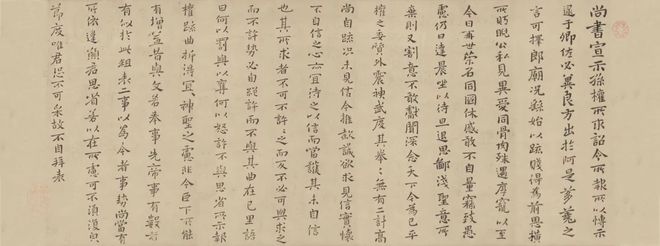 尚書宣示孫權所求詔令所報所以博示
逮于卿佐必冀良方出於阿是芻蕘之
言可擇郎廟況繇始以疏賤得為前恩橫
所盱睨公私見異愛同骨肉殊遇厚寵以至
今日再世榮名同國休慼敢不自量竊致愚
慮仍日達晨坐以待旦退思鄙淺聖意所
棄則又割意不敢獻聞深念天下今為已平
權之委質外震神武度其拳〻無有二計高
尚自疏況未見信今推款誠欲求見信實懷
不自信之心亦宜待之以信而當護其未自信
也其所求者不可不許〻之而反不必可與求之
而不許勢必自絕許而不與其曲在己里語
曰何以罰與以奪何以怒許不與思省所示報
權疏曲折得宜〻神聖之慮非今臣下所能
有增益昔與文若奉事先帝事有數者
有似於此粗表二事以為今者事勢尚當有
所依違願君思省若以在所慮可不須復貌
節度唯君恐不可采故不自拜表